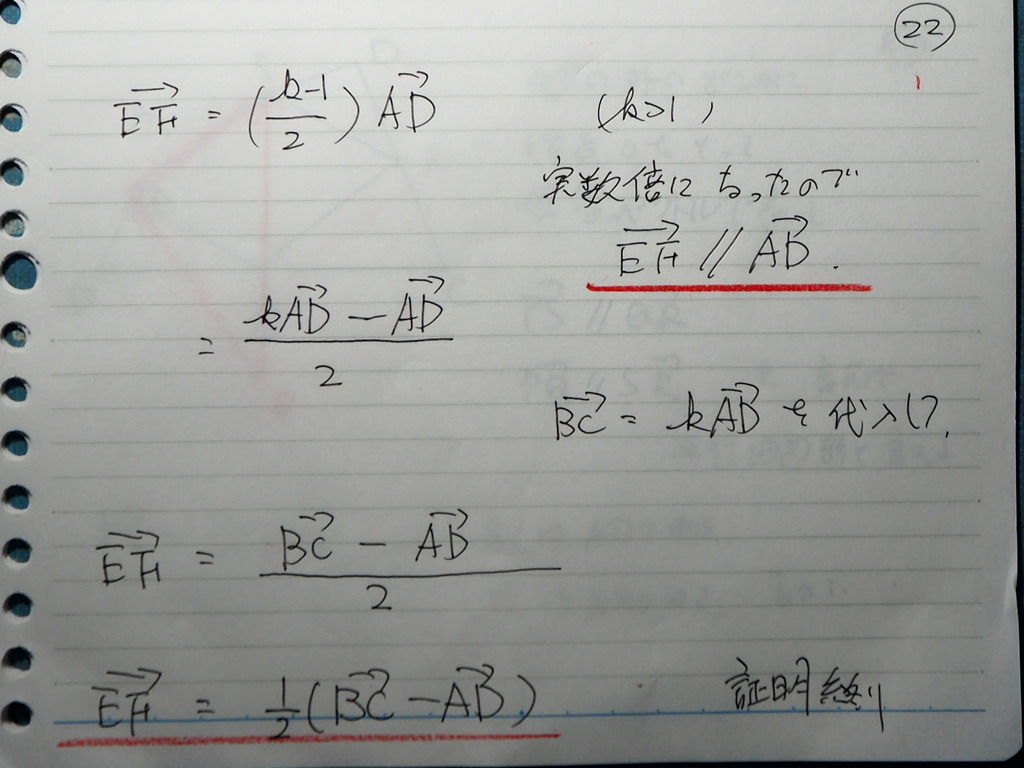 22
EF = (k-1/2) AD (k>1)
実数倍になったので
EF // AD.
= kAD - AD / 2
BC = kAD を代入して,
EF = BC - AD / 2
EF = 1/2 (BC - AD) 証明終り